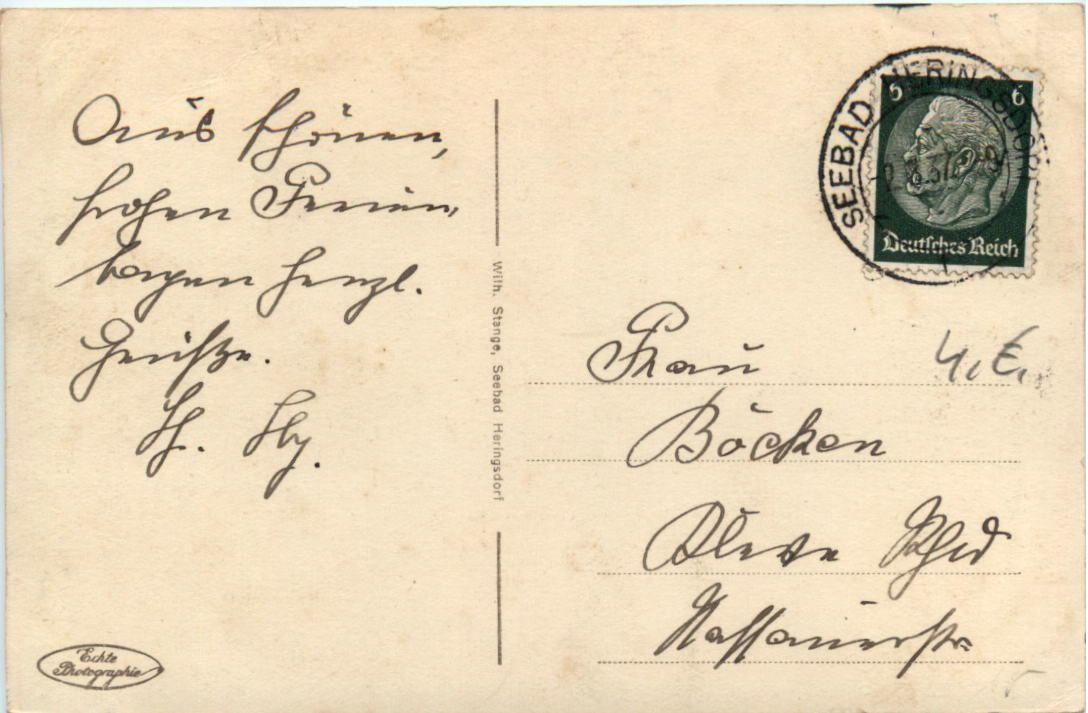 Aus schönen,
frohen Ferien-
tagen herzl.
Grüße.
Wilh. Stange, Seebad Heringsdorf
Echte
Photographie
SEEBAD HERINGSDORF
5 6
Deutsches Reich
Frau
Böcken
Kleve Rhld
Nassauerstr